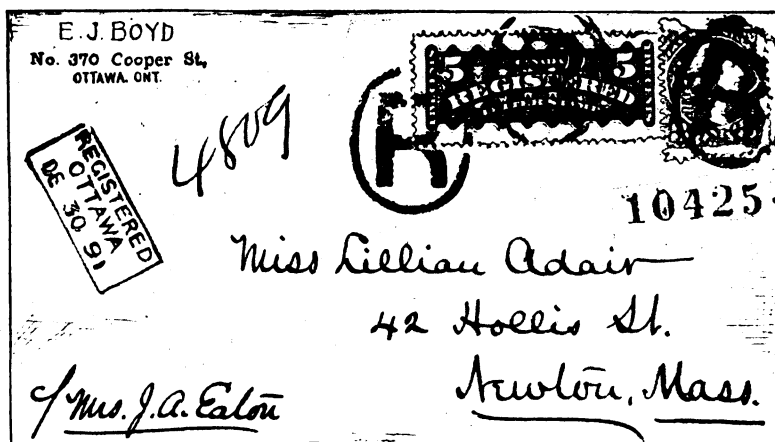 E. J. BOYD
No. 370 Cooper St,
OTTAWA. ONT.
4809
REGISTERED
OTTAWA
DE 30 91
R
5 5
REGISTERED
10425
Miss Lillian Adair
42 Hollis St.
Newton, Mass.
c/ Mrs. J. A. Eaton